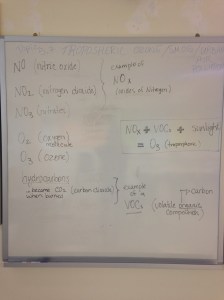 NO (nitric oxide)
NO2 (nitrogen dioxide)
example of
NOx
(oxides of Nitrogen)
NO3 (nitrates)
O2 (oxygen
molecule)
O3 (ozone)
NOx + VOCs + sunlight
= O3 (tropospheric)
hydrocarbons
→ become CO2 (carbon dioxide)
when burned
example
of a
VOCs (volatile organic
compounds)
carbon